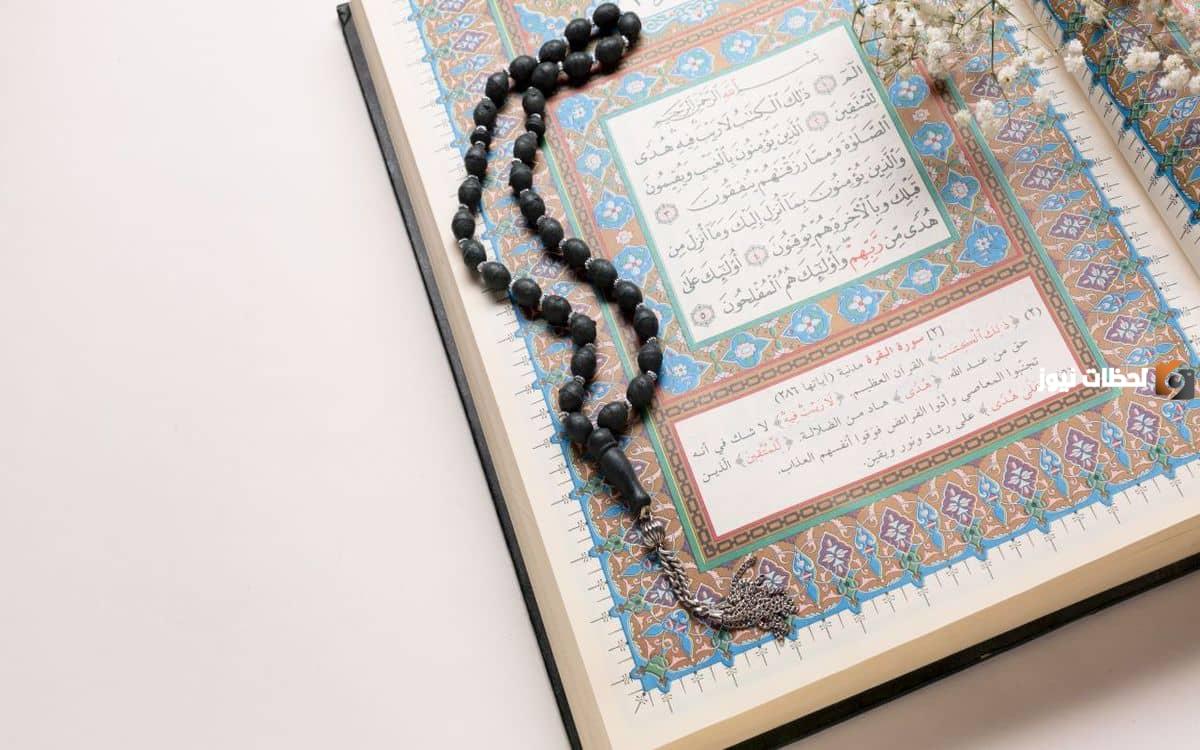 بِسْمِ اللَّهِ الرَّحْمَٰنِ الرَّحِيمِ
الٓمٓ ١ ذَٰلِكَ الْكِتَابُ لَا رَيْبَ فِيهِ هُدًى
لِّلْمُتَّقِينَ ٢ الَّذِينَ يُؤْمِنُونَ بِالْغَيْبِ وَيُقِيمُونَ
الصَّلَوٰةَ وَمِمَّا رَزَقْنَٰهُمْ يُنفِقُونَ ٣
وَالَّذِينَ يُؤْمِنُونَ بِمَا أُنزِلَ إِلَيْكَ وَمَا أُنزِلَ مِن
قَبْلِكَ وَبِالْآخِرَةِ هُمْ يُوقِنُونَ ٤ أُولَٰئِكَ عَلَىٰ
هُدًى مِّن رَّبِّهِمْ وَأُولَٰئِكَ هُمُ الْمُفْلِحُونَ ٥
[٢] سورة البقرة مدنية (آياتها ٢٨٦)
(٢) ﴿ذَٰلِكَ الْكِتَٰبُ﴾ القرآن العظيم. ﴿لَا رَيْبَ فِيهِ﴾ لا شك في أنه
حق من عند الله. ﴿هُدًى﴾ هاد من الضلالة. ﴿لِّلْمُتَّقِينَ﴾ الذين
تجنبوا المعاصي وأدوا الفرائض فوقوا أنفسهم العذاب.
﴿عَلَىٰ هُدًى﴾ على رشاد ونور ويقين.
لحظات نيوز